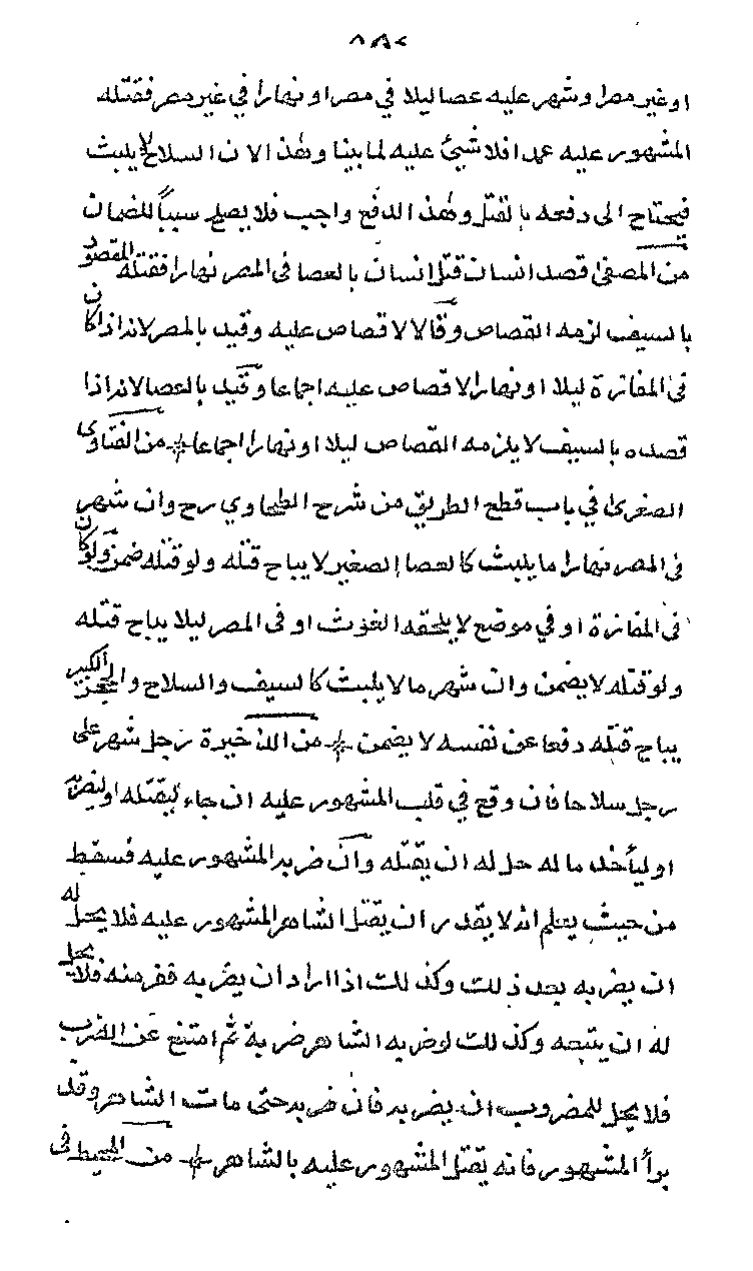 ٨٨٢
او غير مصرا وشهر عليه عصا ليلا في مصر او نهارا في غير مصر فقتله
المشهور عليه عمدا فلا شيئ عليه لما بينا وهذا لان السلاح لا يلبث
فيحتاج الى دفعه بالقتل وهذا الدفع واجب فلا يصلح سببا للضمان
من المصفى قصد انسان قتل انسان بالعصا فى المصر نهارا فقتله المقصود
بالسيف لزمه القصاص وقالا لا قصاص عليه وقيد بالمصر لانه اذا كان
فى المفازة ليلا او نهارا لا قصاص عليه اجماعا وقيد بالعصا لانه اذا
قصده بالسيف لا يلزمه القصاص ليلا او نهارا اجماعا من الفتاوى
الصغرى في باب قطع الطريق من شرح الطحاوي رح وان شهر
فى المصر نهارا ما يلبث كالعصا الصغير لا يباح قتله ولو قتله ضمن ولو كان
فى المفازة او في موضع لا يلحقه الغوث او فى المصر ليلا يباح قتله
ولو قتله لا يضمن وان شهر ما لا يلبث كالسيف والسلاح والحجر الكبير
يباح قتله دفعا عن نفسه لا يضمن من الذخيرة رجل شهر على
رجل سلاحا فان وقع في قلب المشهور عليه ان جاء ليقتله او ليضربه
او ليأخذ ماله حل له ان يقتله وان ضربه المشهور عليه فسقط
من حيث يعلم انه لا يقدر ان يقتل الشاهر المشهور عليه فلا يحل له
ان يضربه بعد ذلك وكذلك اذا اراد ان يضربه ففر منه فلا يحل
له ان يتبعه وكذلك لو ضربه الشاهر ضربة ثم امتنع عن الضرب
فلا يحل للمضروب ان يضربه فان ضربه حتى مات الشاهر وقد
برأ المشهور فانه يقتل المشهور عليه بالشاهر من المحيط فى